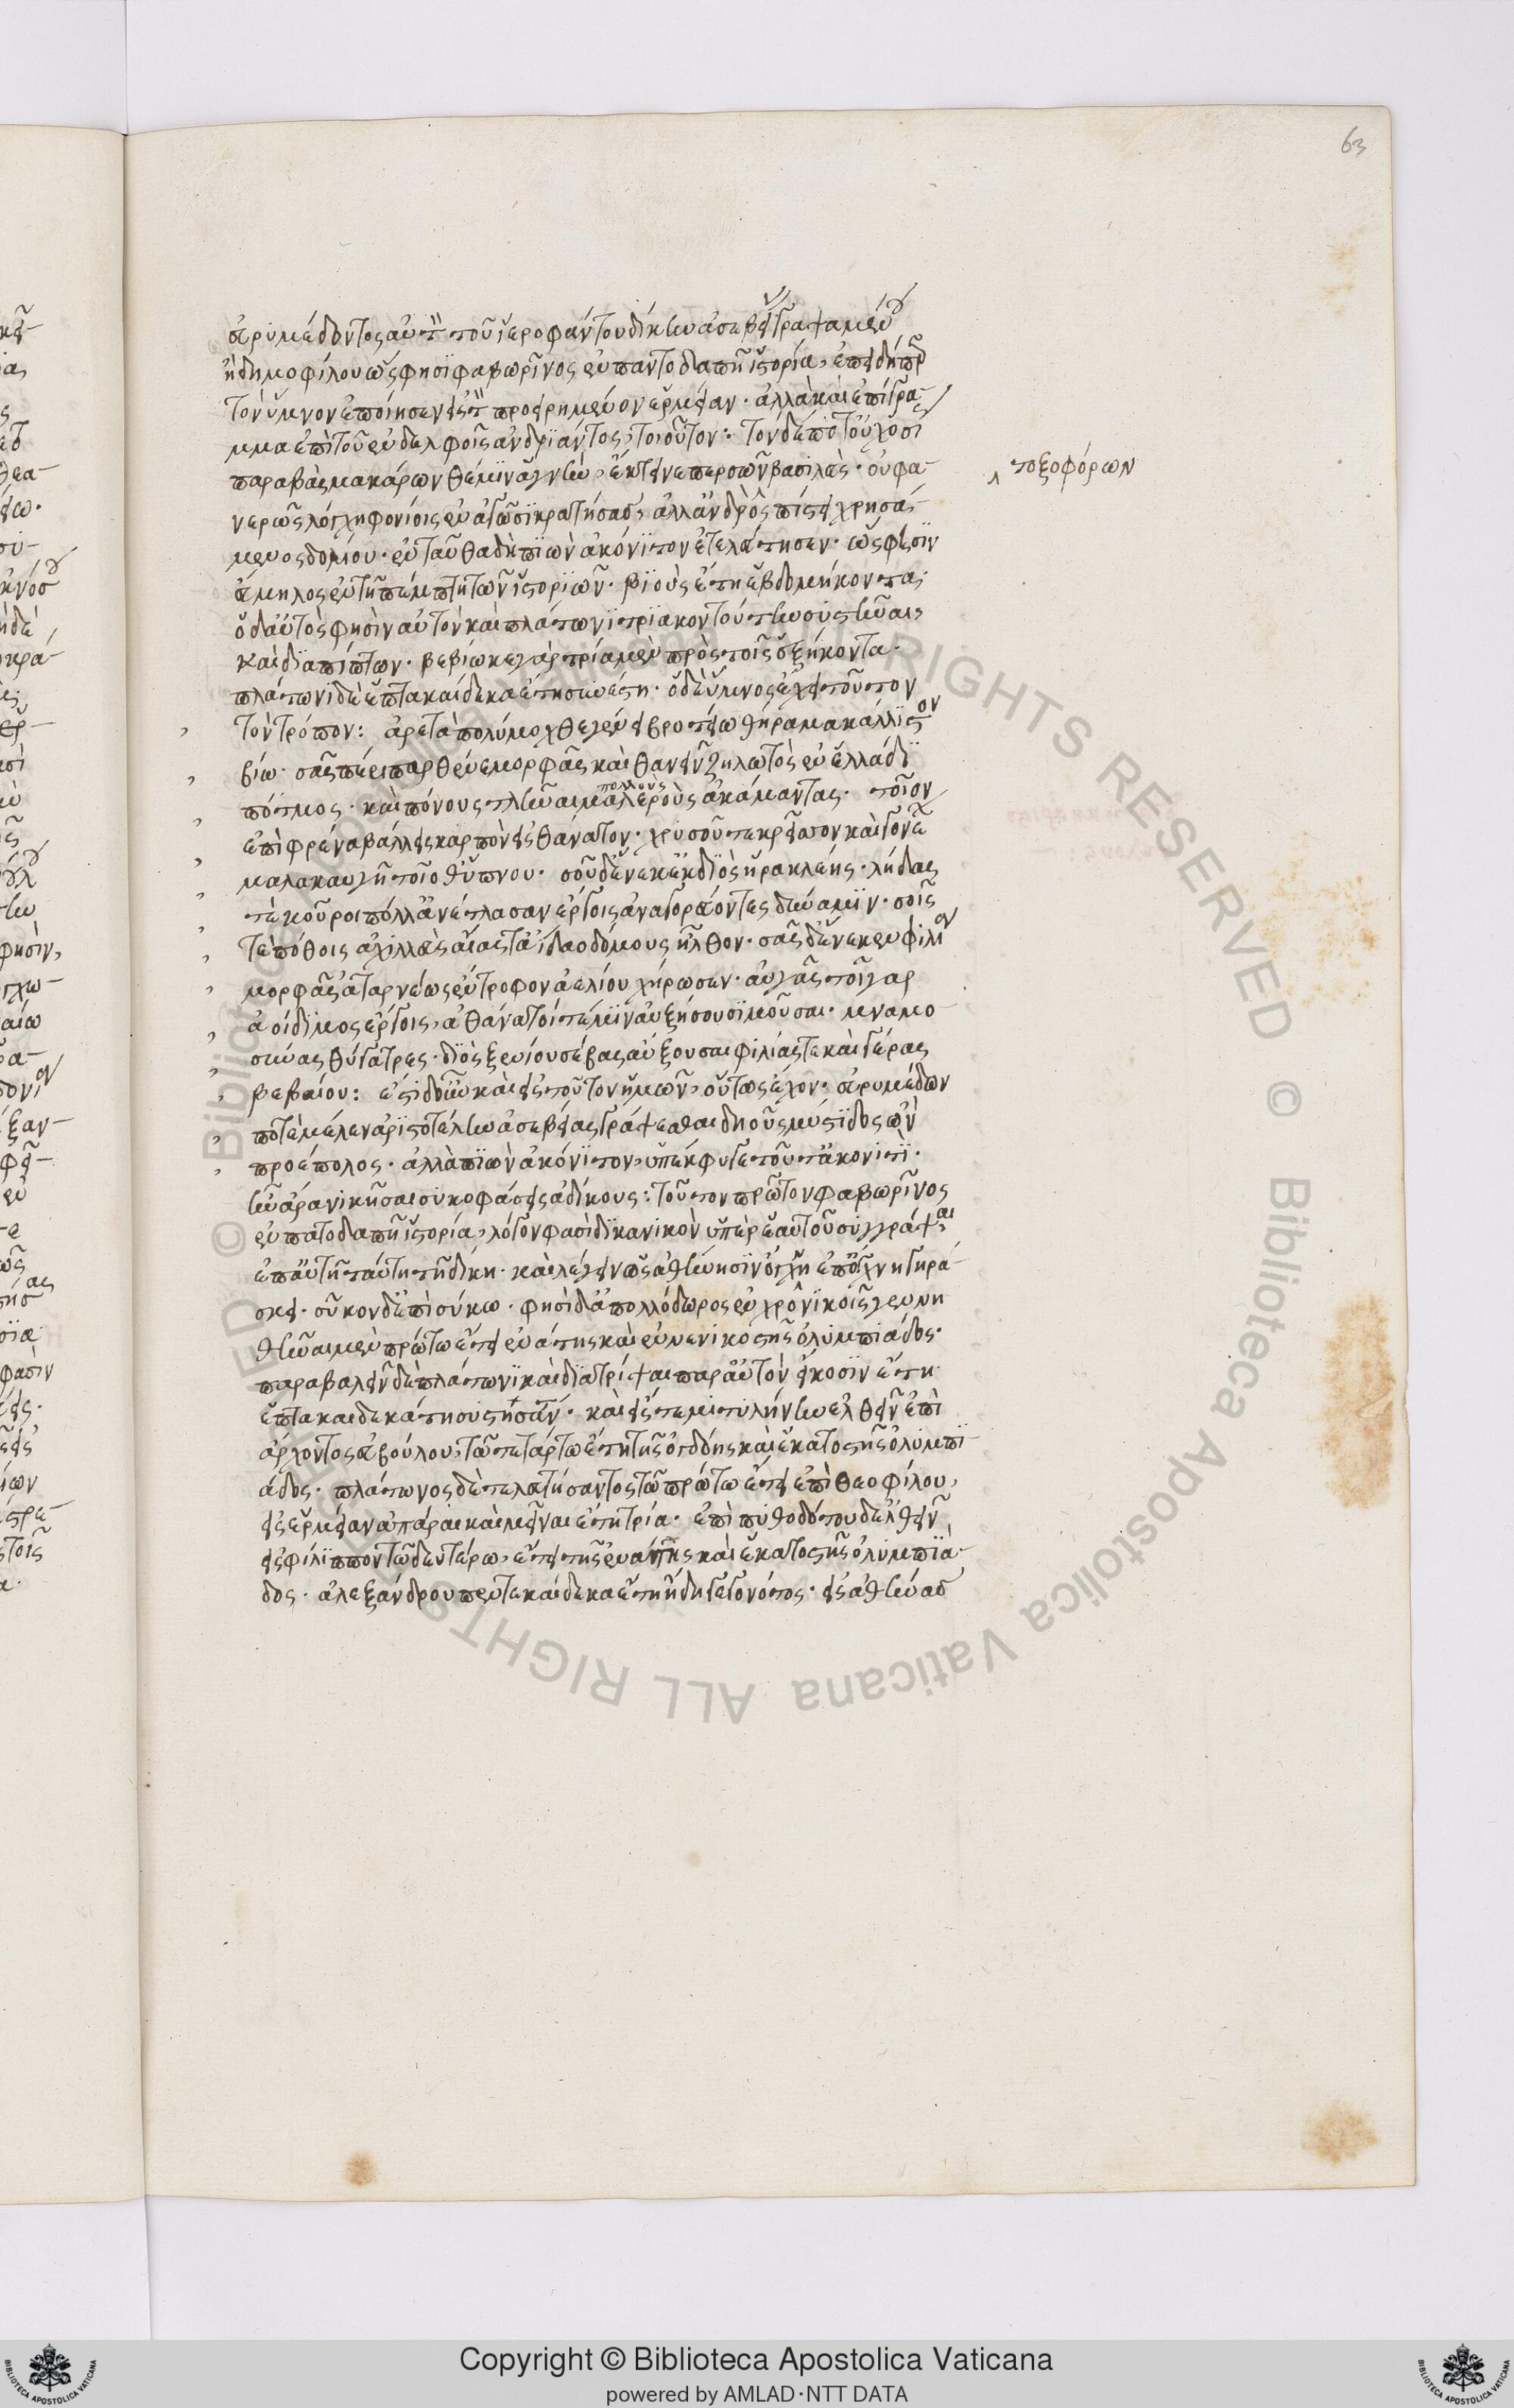 63
εὐρυμέδοντος αὐτῶ τοῦ ἱεροφάντου δίκην ἀσεβείας γραψαμένου
ἢ δημοφίλου ὥς φησι φαβωρῖνος ἐν παντοδαπῆ ἱστορία, ἐπειδήπερ
τὸν ὕμνον ἐποίησεν εἰς τὸν προειρημένον ἑρμείαν· ἀλλὰ καὶ ἐπίγρα-
μμα ἐπὶ τοῦ ἐν δελφοῖς ἀνδριάντος, τοιοῦτον: τόνδε ποτ' οὐχ ὁσί
παραβὰς μακάρων θέμιν ἁγνὴν, ἔκτεινε περσῶν βασιλεὺς· οὐ φα-
τοξοφόρων
νερῶς λόγχη φονίοις ἐν ἀγῶσι κρατήσας, ἀλλ' ἀνδρὸς πίστει χρησά-
μενος δολίου· ἐνταῦθα δὴ πιὼν ἀκόνιτον ἐτελεύτησεν· ὥς φησιν
εὔμηλος ἐν τῆ πέμπτη τῶν ἱστοριῶν· βιοὺς ἔτη ἑβδομήκοντα·
ὁ δ' αὐτὸς φησὶν αὐτὸν καὶ πλάτωνι τριακοντούτην συστῆναι,
καὶ διαπίπτων· βεβίωκε γὰρ τρία μὲν πρὸς τοῖς ἑξήκοντα·
πλάτωνι δὲ ἑπτακαίδεκα ἔτη συνέστη· ὁ δὲ ὕμνος ἔχει τοῦτον
τὸν τρόπον: ἀρετὰ πολύμοχθε γένει βροτείω θήραμα κάλλιστον
βίω· σᾶς πέρι παρθένε μορφᾶς καὶ θανεῖν ζηλωτὸς ἐν ἑλλάδι
πολλοὺς
πότμος· καὶ πόνους τλῆναι μαλεροὺς ἀκάμαντας· τοῖον
ἐπὶ φρένα βάλλεις καρπὸν εἰς θάνατον· χρυσοῦ τε κρεῖττον καὶ γονέων
μαλακαυγῆτοῖο θ' ὕπνου· σοῦ δ' ἕνεκεκ διὸς ἡρακλέης· λήδας
τε κοῦροι πόλλ' ἀνέτλασαν ἔργοις ἀναγορεύοντες δύναμιν· σοῖς
τε πόθοις ἀχιλλεὺς αἴας τ' ἀΐδαο δόμους ἦλθον· σᾶς δ' ἕνεκεν φιλίου
μορφᾶς ἀταρνέως ἔντροφον ἀελίου χήρωσεν· αὐγᾶς τοῖγαρ
ἀοίδιμος ἔργοις, ἀθάνατοί τέ μιν αὐξήσουσι μοῦσαι· μναμο-
σύνας θύγατρες· διὸς ξενίου σέβας αὔξουσαι φιλίας τε καὶ γέρας
βεβαίου: ἔστι δ' οὖν καὶ εἰς τοῦτον ἡμῶν, οὕτως ἔχον· εὐρυμέδων
ποτὲ μέλεν ἀριστοτέλην ἀσεβείας γράψεσθαι δηοῦς μύστιδος ὢν
προέπολος· ἀλλὰ πιὼν ἀκόνιτον, ὑπέκφυγε τοῦτ' ἀκονιτὶ·
ἦν ἄρα νικῆσαι συκοφάσεις ἀδίκους: τοῦτον πρῶτον φαβωρῖνος
ἐν πατοδαπῆ ἱστορία, λόγον φασὶ δικανικὸν ὑπὲρ ἑαυτοῦ συγγράψαι
ἐπ' αὐτῆ ταύτη τῆ δίκη· καὶ λέγειν ὡς ἀθήνησιν ὄγχνη ἐπ' ὄγχνη γηρά-
σκει· σῦκον δ' ἐπὶ σύκω· φησὶ δ' ἀπολλόδωρος ἐν χρονικοῖς γεννη
θῆναι μὲν πρώτω ἔτει ἐνάτης καὶ ἐνενικοστῆς ὀλυμπιάδος·
παραβαλεῖν δὲ πλάτωνι καὶ διατρίψαι παρ' αὐτὸν εἴκοσιν ἔτη
ἑπτακαιδεκάτη συστήσαν· καὶ εἴς τε μιτυλήνην ἐλθεῖν ἐπὶ
ἄρχοντος εὐβούλου, τῶ τετάρτω ἔτη τῆς ὀγδόης καὶ ἑκατοστῆς ὀλυμπι-
άδος· πλάτωνος δὲ τελευτήσαντος τῶ πρώτω ἔτει ἐπὶ θεοφίλου,
εἰς ἑρμείαν ἀπάραι καὶ μεῖναι ἔτη τρία· ἐπὶ πυθοδότου δ' ἐλθεῖν
εἰς φίλιππον τῶ δευτέρω, ἔτει τῆς ἐνάτης καὶ ἑκατοστῆς ὀλυμπιά-
δος· ἀλεξάνδρου πεντεκαίδεκα ἔτη ἤδη γεγονότος· εἰς ἀθήνας
Copyright © Biblioteca Apostolica Vaticana
powered by AMLAD·NTT DATA